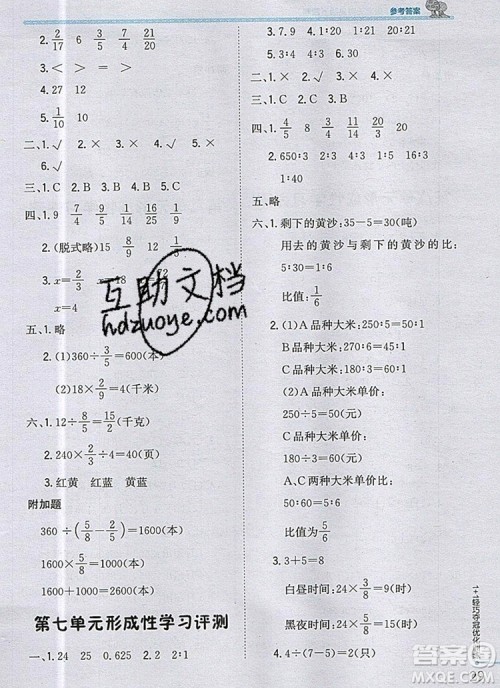 参考答案
2. 2/15 7/20 8/9 4/21 6/17
3.< > = =
4.27 18
5. 1/10 10
二、1.√ 2.× 3.× 4.√ 5.×
6.√
三、1.C 2.B 3.C 4.A
1.9
2.(脱式略) 15 8/9 12 1/3
3.x= 2/3
x=4
五、1.略
2.(1)360÷ =600(本)
(2)18× 2/9 =4(千米)
六、1.12÷ 8/5 = 15/2 (千克)
2.240× 2/3 ÷4=40(页)
3.红黄 红蓝 黄蓝
附加题
360÷(5/8-2/5)=1600(本)
1600× 5/8 =1000(本)
1600+1000=2600(本)
第七单元形成性学习评测
一、1.24 25 0.625 2.2∶1
3.7.9 4.1∶20 1∶21 20∶21
二、1.× 2.× 3.√
三、1.C 2.B 3.C
四、1. 4/5 8 1/10 5/9
2.650∶3 2∶3 3∶2 16∶1
1∶40
五、略
六、1.剩下的黄沙:35-5=30(吨)
用去的黄沙与剩下的黄沙的比:
5∶30=1∶6
比值: 1/6
2.(1)A品种大米:250∶5=50∶1
B品种大米:270∶6=45∶1
C品种大米:180∶3=60∶1
(2)A品种大米单价:
250÷5=50(元)
C品种大米单价:
180÷3=60(元)
A、C两品种大米单价比为5∶6
比值为 5/6
3.3+5=8
白昼时间:24×
黑夜时间:24×
4.4÷(7-5)=2(只)
1+1轻巧夺冠优化
互助文档
hdzuoye.com
答案圈
MXQE.COM